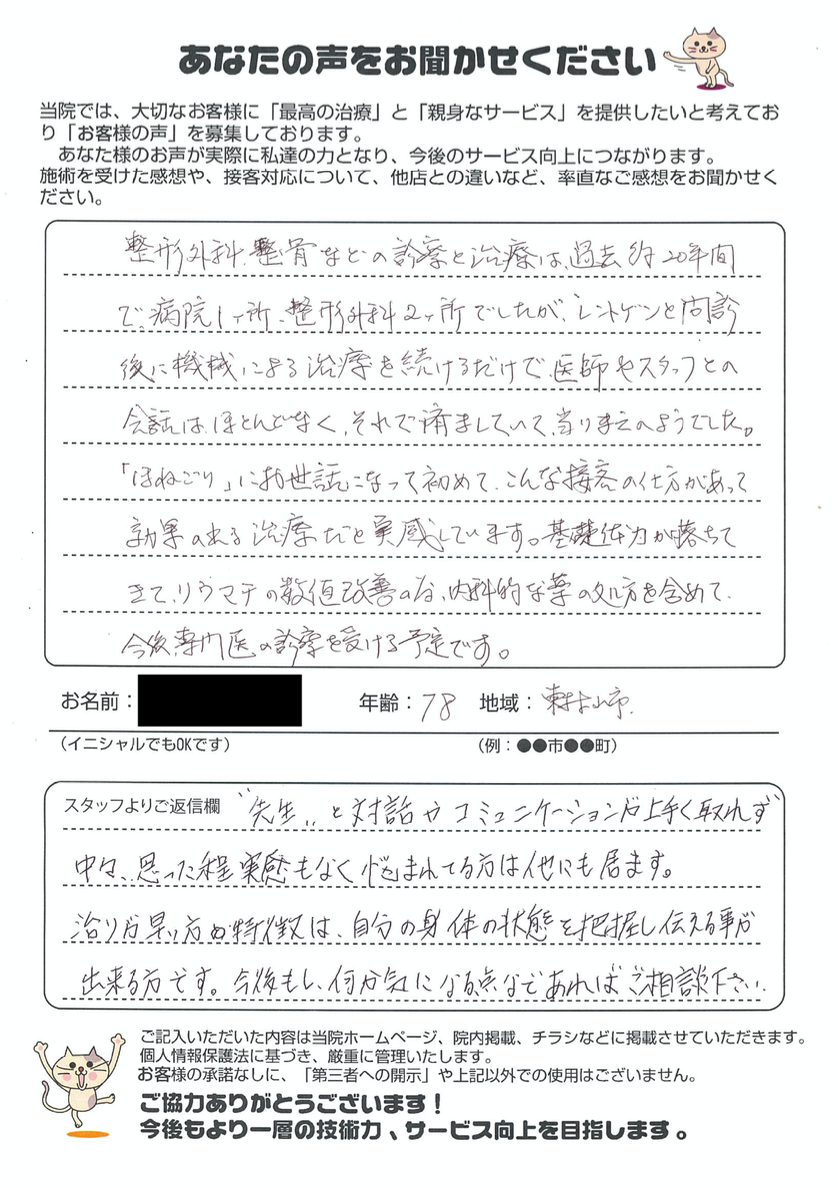 あなたの声をお聞かせください
当院では、大切なお客様に「最高の治療」と「親身なサービス」を提供したいと考えてお
り「お客様の声」を募集しております。
あなた様のお声が実際に私達の力となり、今後のサービス向上につながります。
施術を受けた感想や、接客対応について、他店との違いなど、率直なご感想をお聞かせく
ださい。
整形外科、整骨などの診察と治療は、過去約20年間
で、病院1ヶ所、整形外科2ヶ所でしたが、レントゲンと問診
後に機械による治療を続けるだけで、医師やスタッフとの
会話は、ほとんどなく、それで済ましていて、当りまえのようでした。
「ほねごり」にお世話になって初めて、こんな接客の仕方があって
効果の出る治療だと実感しています。基礎体力が落ちて
きて、リウマチの数値改善の為、内科的な薬の処方を含めて、
今後、専門医の診察を受ける予定です。
お名前：
年齢：78 地域：東村山市.
（イニシャルでもOKです）
（例：●●市●●町）
スタッフよりご返信欄 “先生„と対話やコミュニケーションが上手く取れず
中々、思った程実感もなく悩まれてる方は他にも居ます。
治りが早い方の特徴は、自分の身体の状態を把握し伝える事が
出来る方です。今後もし、何か気になる点などあればご相談下さい.
ご記入いただいた内容は当院ホームページ、院内掲載、チラシなどに掲載させていただきます。
個人情報保護法に基づき、厳重に管理いたします。
お客様の承諾なしに、「第三者への開示」や上記以外での使用はございません。
ご協力ありがとうございます！
今後もより一層の技術力、サービス向上を目指します。